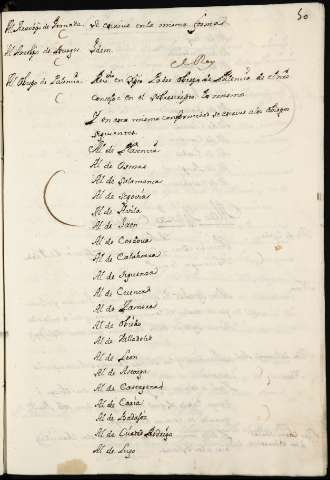 50
Al Arzobpo de Granada Se escrive en la misma forma
Al Arzbpo de Burgos Idem
el Rey
Al Obispo de Palencia Revdo en Xpto Padre Obispo de Palencia de el mi
Consejo en el Sobrescripto Lo mismo
Y en esta misma conformidad se escrive a los Obispos
siguientes
Al de Plasencia
Al de Osma
Al de Salamanca
Al de Segovia
Al de Avila
Al de Jaen
Al de Cordova
Al de Calahorra
Al de Siguenza
Al de Cuenca
Al de Zamora
Al de Obiedo
Al de Valladolid
Al de Leon
Al de Astorga
Al de Cartagena
Al de Coria
Al de Badajoz
Al de Ciudad Rodrigo
Al de Lugo